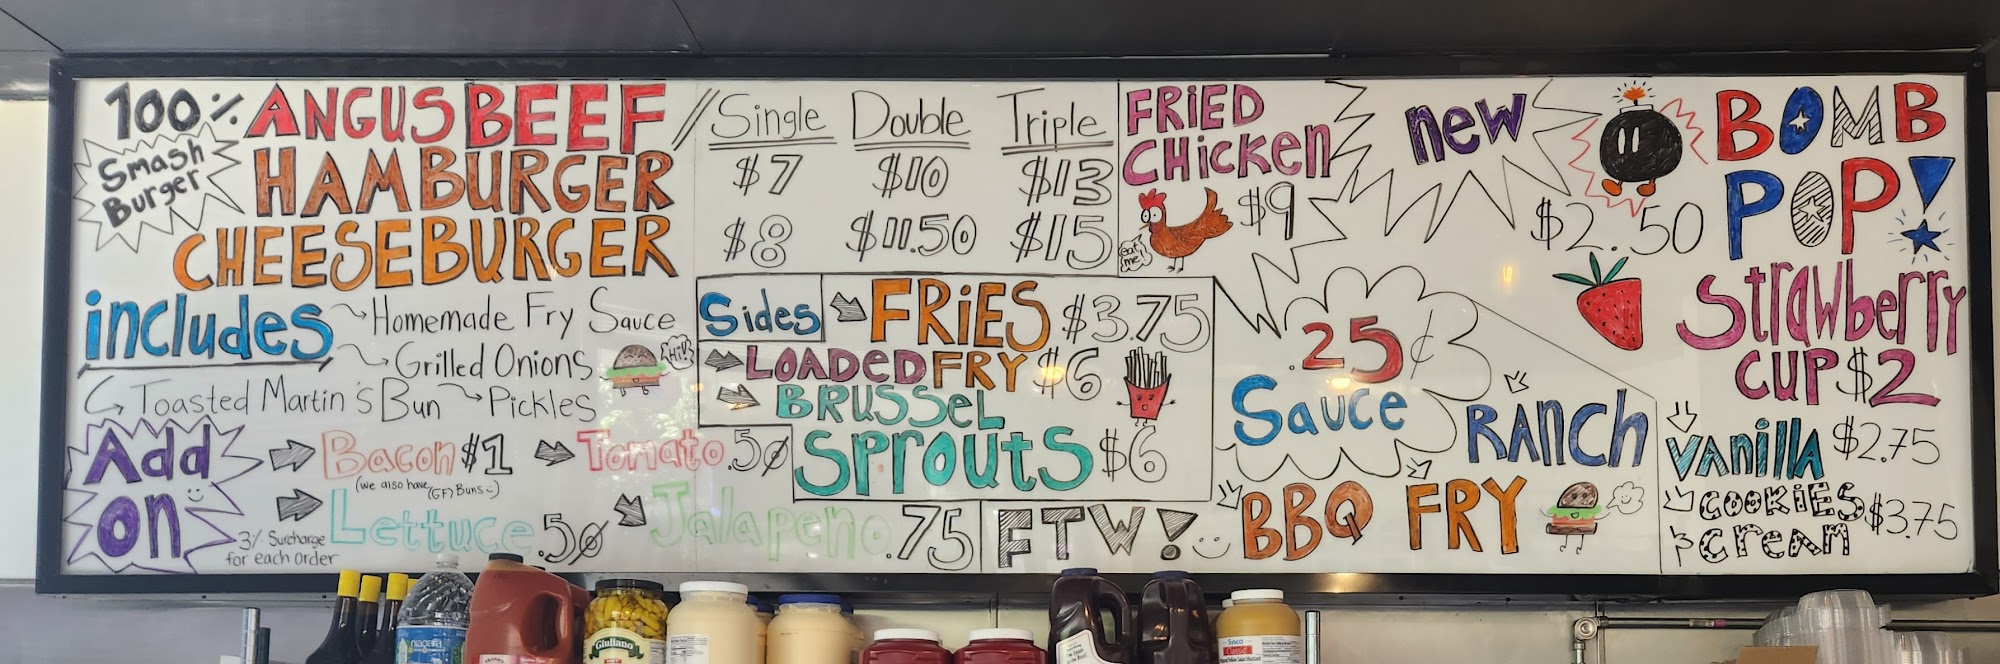 100% ANGUS BEEF
Smash
Burger
HAMBURGER
CHEESEBURGER
Single Double Triple
$7 $10 $13
$8 $11.50 $15
includes
Homemade Fry Sauce
Grilled Onions
Hi!!
Toasted Martin's Bun Pickles
Add
on
Bacon $1 Tomato .50
(we also have (GF) Buns :)
Lettuce .50 Jalapeno .75
3% Surcharge
for each order
Sides FRIES $3.75
LOADED FRY $6
BRUSSEL
SPROUTS $6
FTW!
FRIED
CHICKEN
$9
eat
me!
new
BOMB
POP!
$2.50
Strawberry
CUP $2
.25¢
Sauce
RANCH
BBQ FRY
VANILLA $2.75
COOKIES
CREAM $3.75
Giuliano
Sysco
Classic